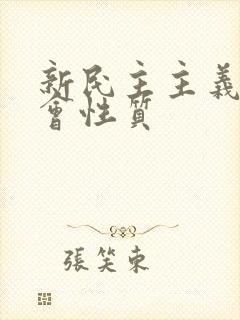 新民主主義
會性質
張笑東